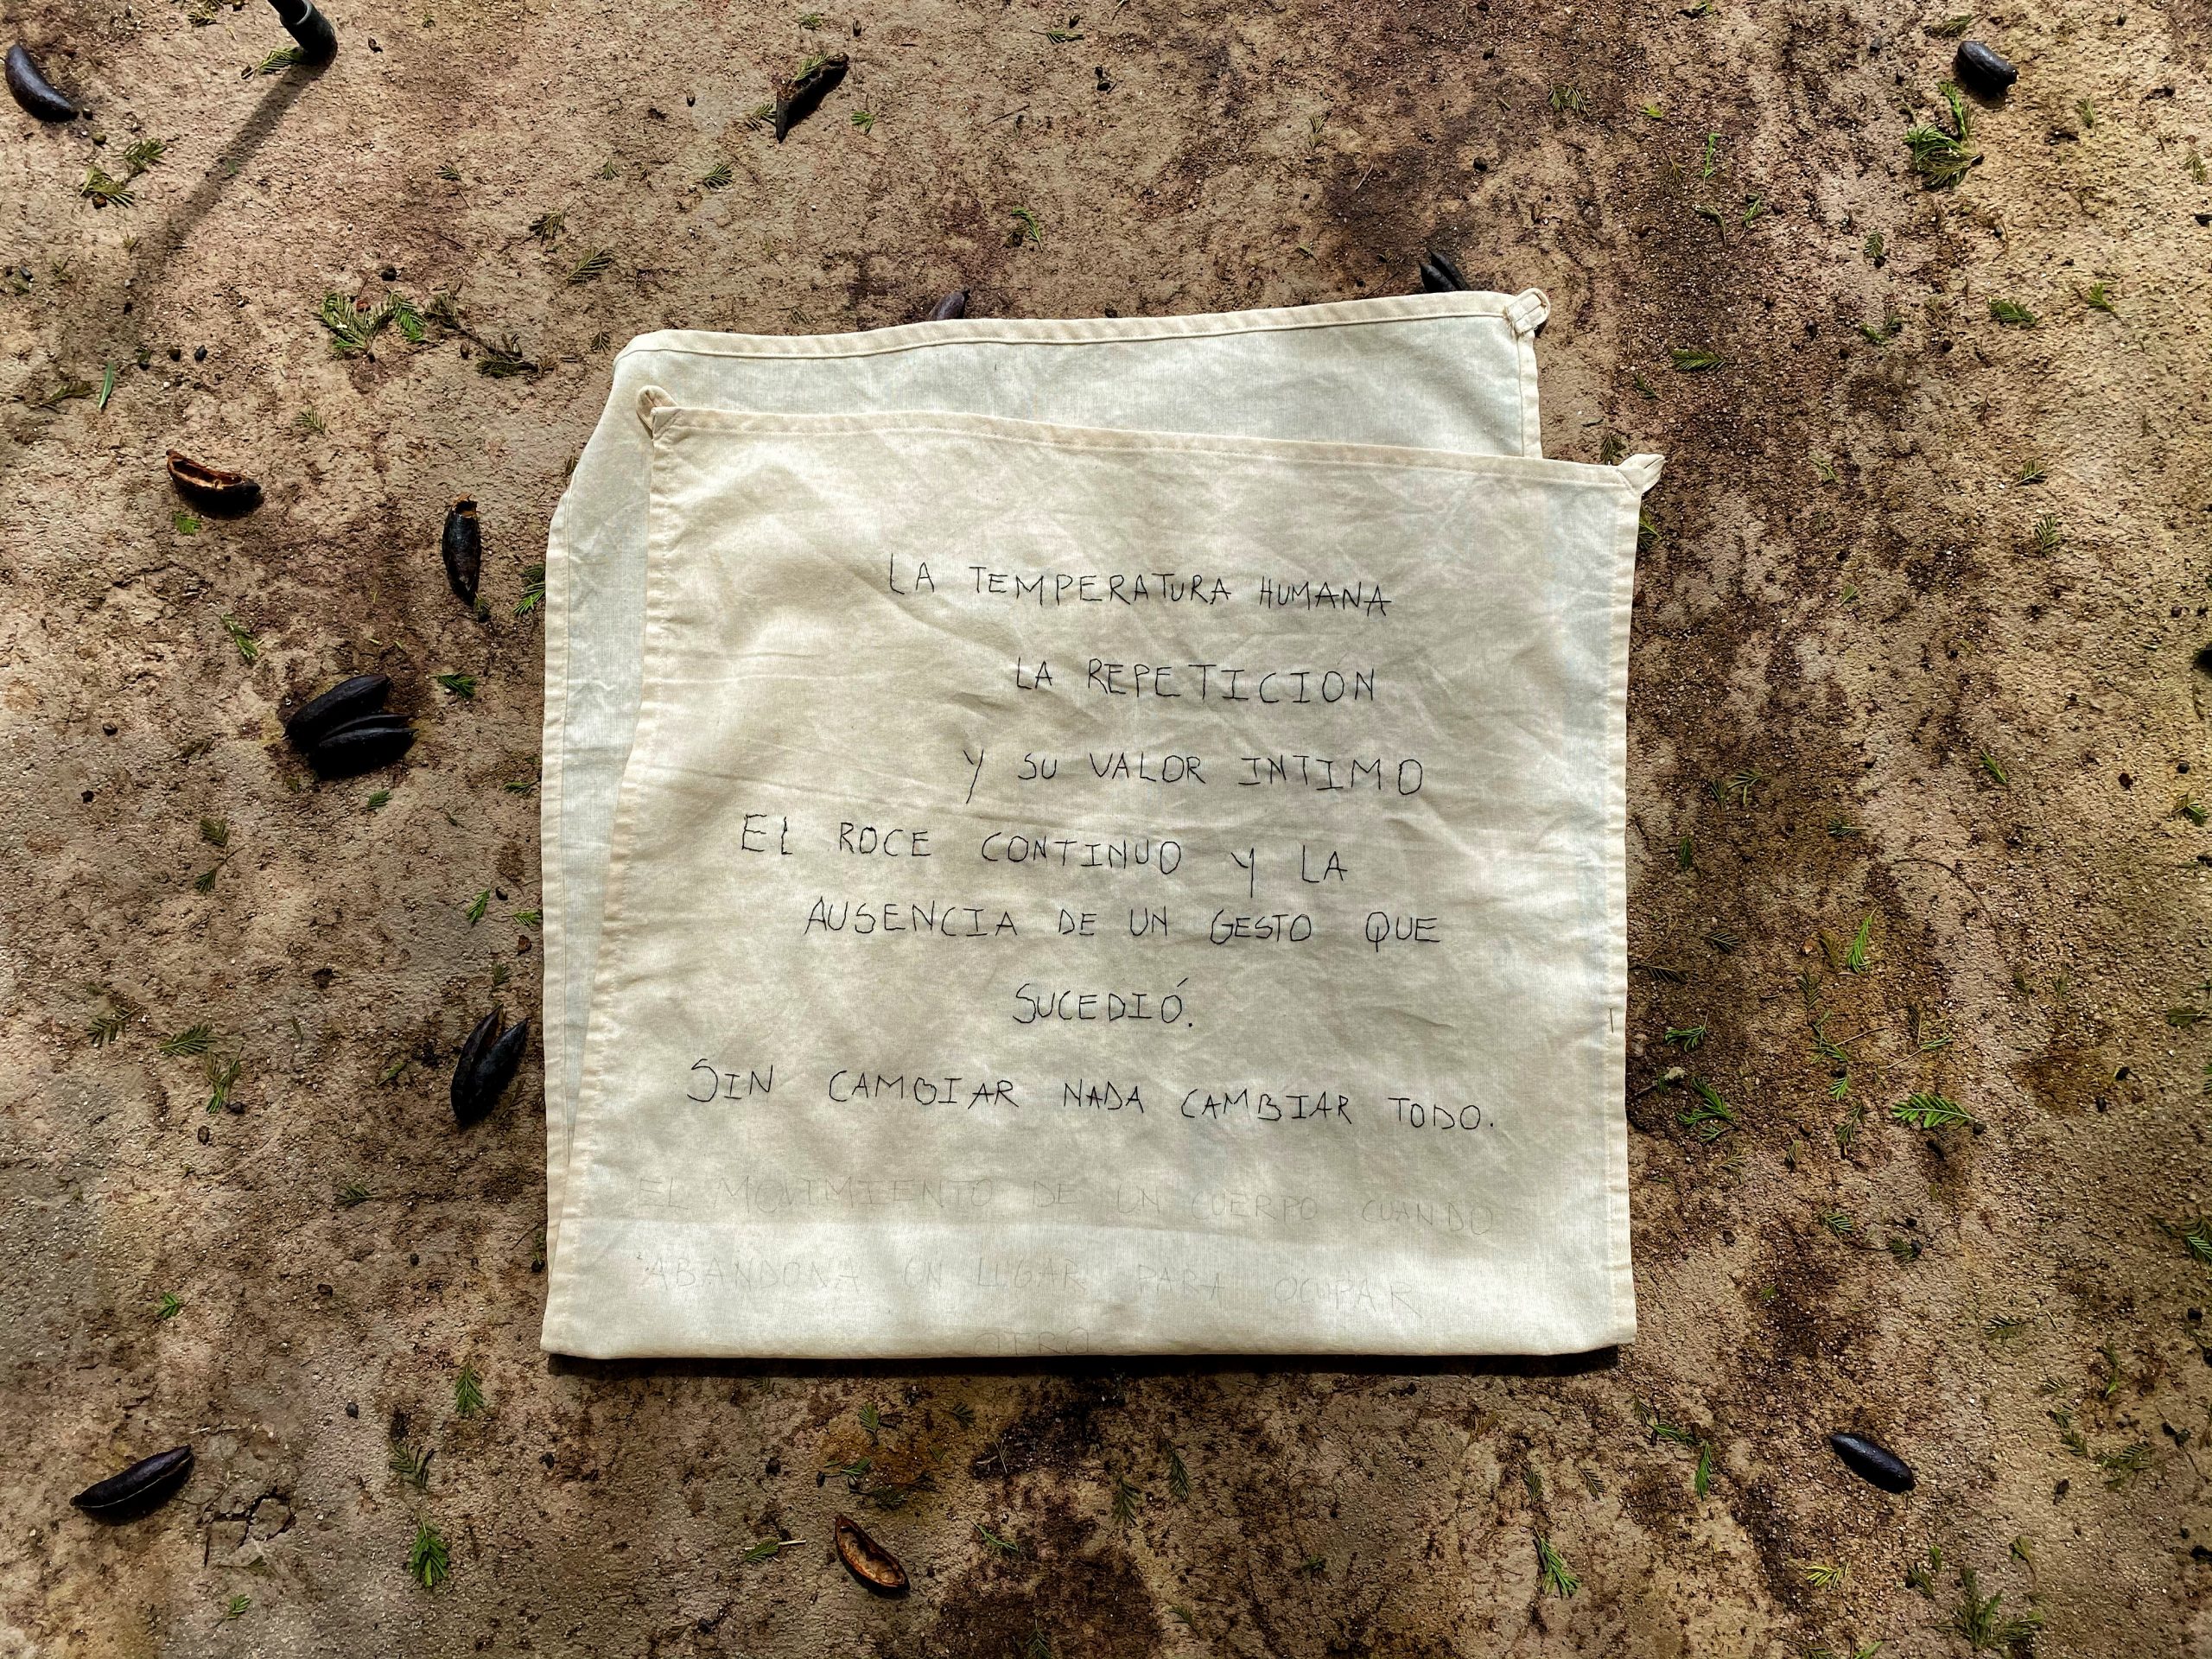 LA TEMPERATURA HUMANA
LA REPETICION
Y SU VALOR INTIMO
EL ROCE CONTINUO Y LA
AUSENCIA DE UN GESTO QUE
SUCEDIÓ.
SIN CAMBIAR NADA CAMBIAR TODO.
EL MOVIMIENTO DE UN CUERPO CUANDO
ABANDONA UN LUGAR PARA OCUPAR
OTRO